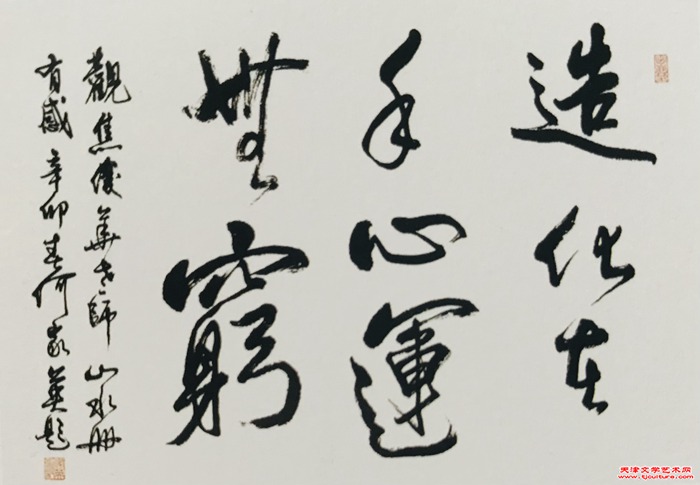 造化在
手心運
無窮
觀焦俊華老師山水冊
有感辛卯春何家英題
天津文学艺术网
www.tjculture.com